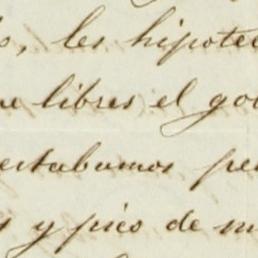 s, les hipotec
e libres el go
estabamos pe
s y pico de m